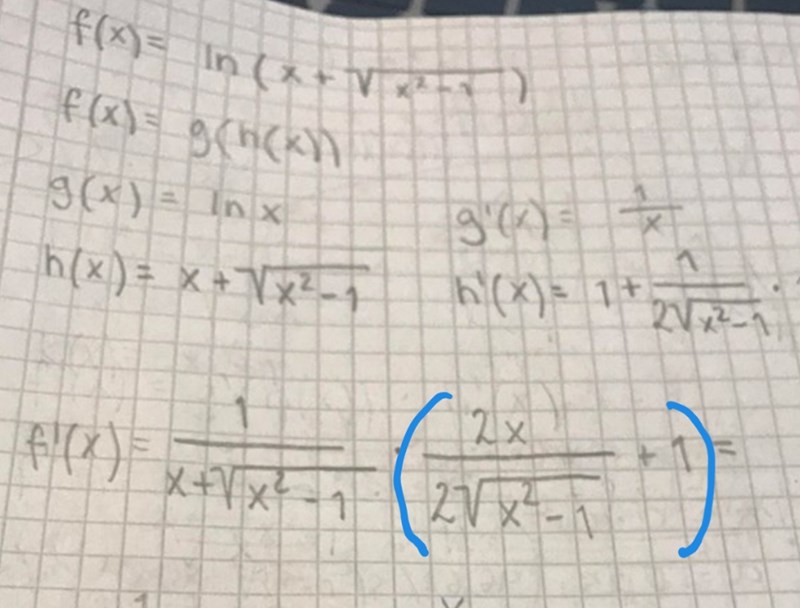 f(x) = ln(x + √(x² - 1))
f(x) = g(h(x))
g(x) = ln x    g'(x) = 1/x
h(x) = x + √(x² - 1)    h'(x) = 1 + 1/(2√(x² - 1)) ·
f'(x) = 1/(x + √(x² - 1)) · (2x/(2√(x² - 1)) + 1) =